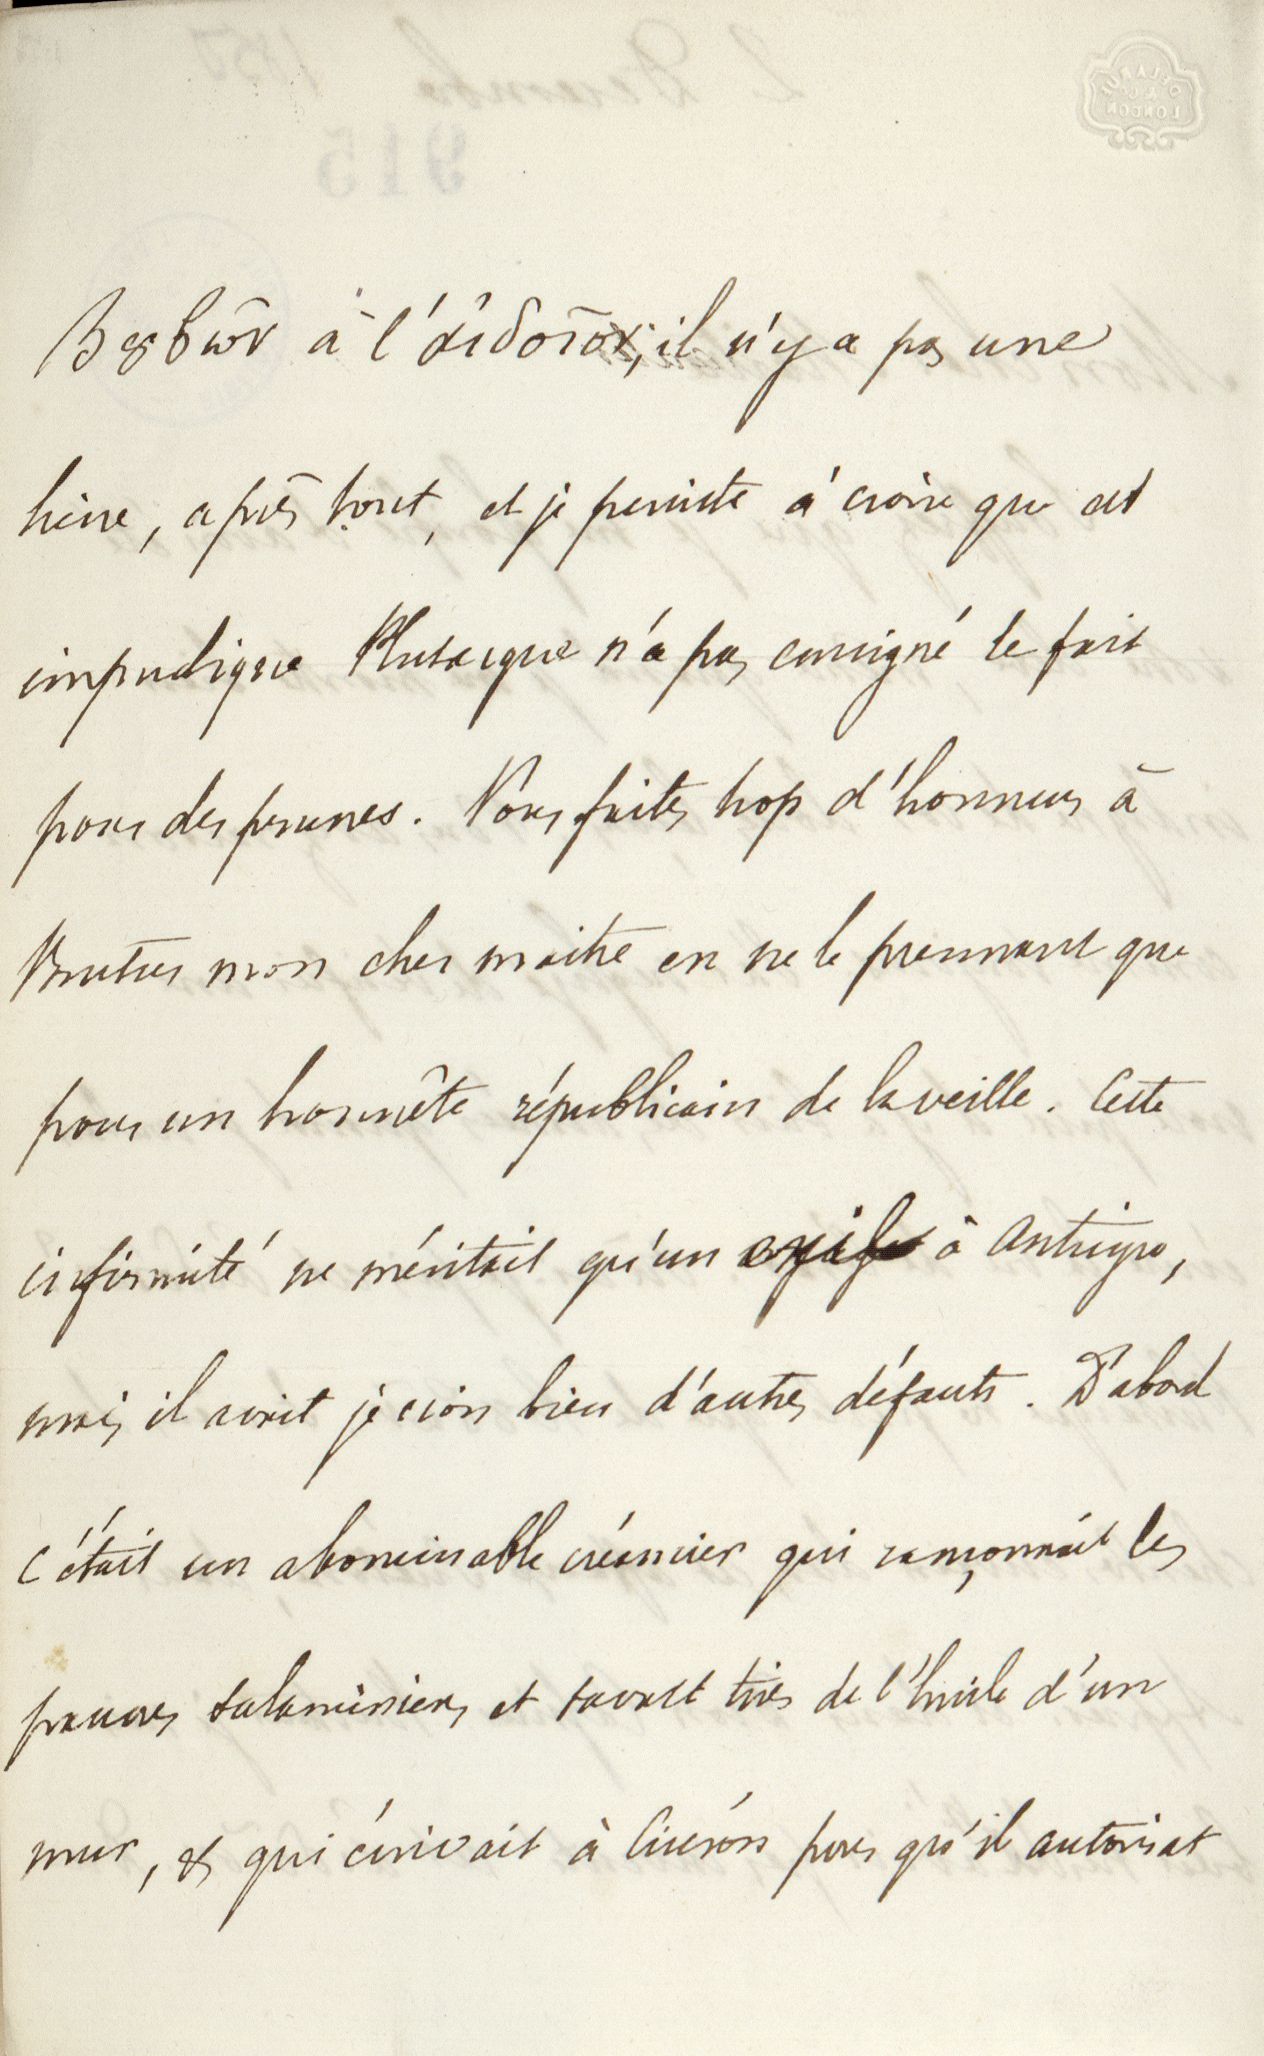 à l' il n'y a pas une
lieue, après tout, et je persiste à croire que cet
impudique Plutarque n'a pas consigné le fait
pour des prunes. Vous faites trop d'honneur à
Brutus mon cher maitre en ne le prennant que
pour un honnête républicain de la veille. Cette
infirmité ne méritait qu'un exil à
mais il avait je crois bien d'autres défauts. D'abord
c'était un abominable créancier qui rançonnait les
pauvres salaminiens et savait tirer de l'huile d'un
mur, & qui écrivait à Cicéron pour qu'il autorisat
DELARUE
& Co
LONDON